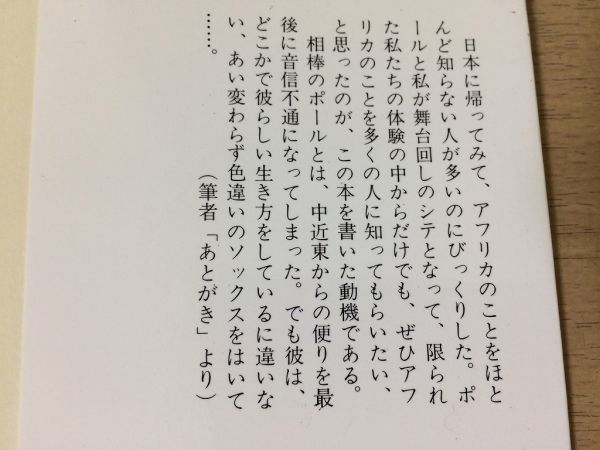 日本に帰ってみて、アフリカのことをほと
んど知らない人が多いのにびっくりした。ポ
ールと私が舞台回しのシテとなって、限られ
た私たちの体験の中からだけでも、ぜひアフ
リカのことを多くの人に知ってもらいたい、
と思ったのが、この本を書いた動機である。
相棒のポールとは、中近東からの便りを最
後に音信不通になってしまった。でも彼は、
どこかで彼らしい生き方をしているに違いな
い、あい変わらず色違いのソックスをはいて
……。
（筆者「あとがき」より）